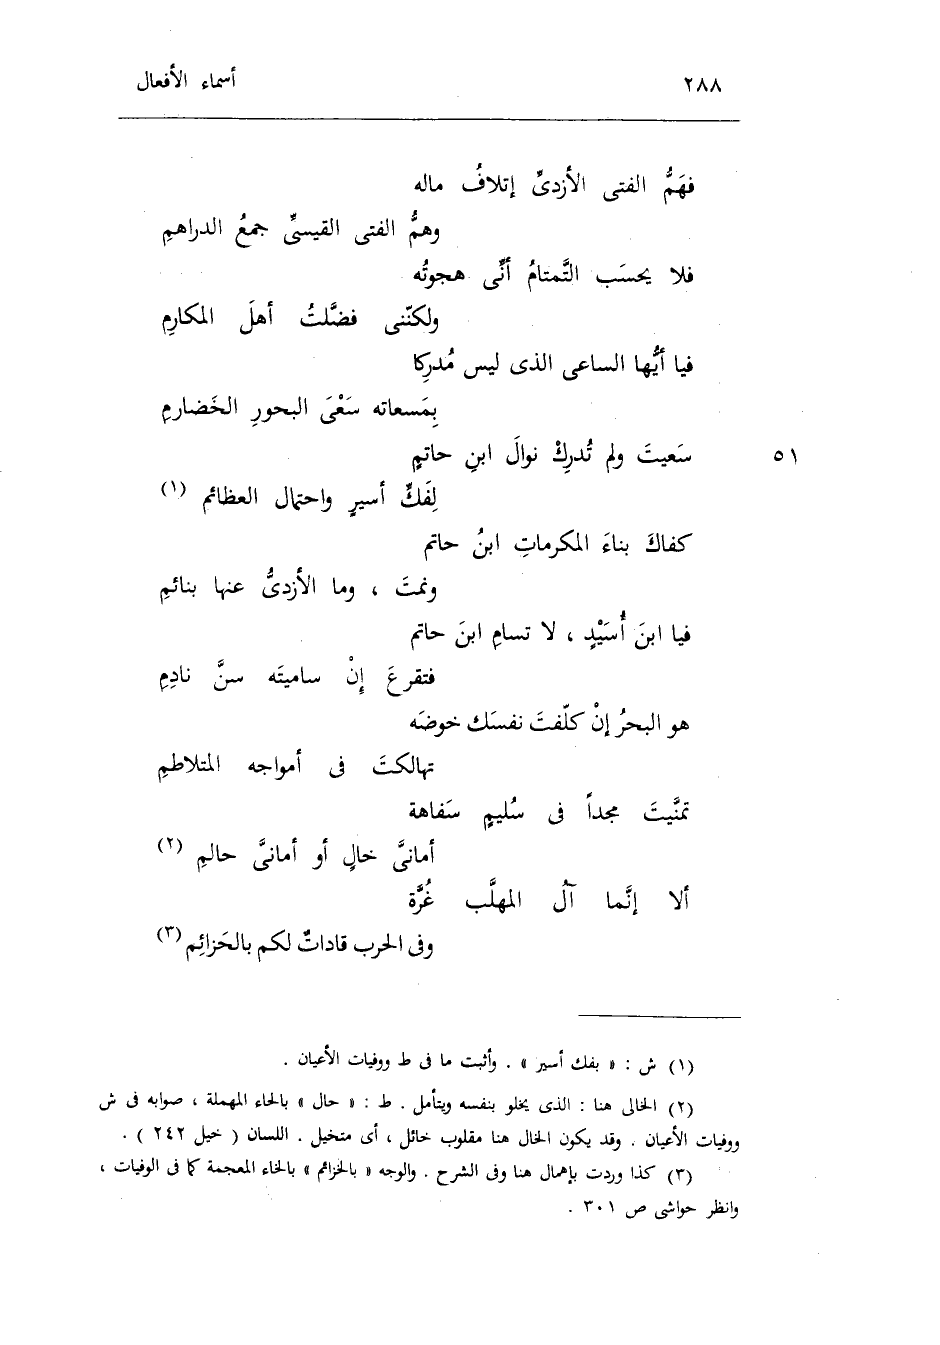 ٢٨٨ أسماء الأفعال
فهَمُّ الفتى الأزدىِّ إتلافُ ماله
وهمُّ الفتى القيسىِّ جمعُ الدراهمِ
فلا يحسَب التَّمتامُ أنِّى هجوتُه
ولكنّنى فضَّلتُ أهلَ المكارمِ
فيا أيُّها الساعى الذى ليس مُدرِكا
بِمَسعاته سَعْىَ البحورِ الخَضارمِ
سَعيتَ ولم تُدرِكْ نوالَ ابنِ حاتمٍ ٥١
لِفَكِّ أسيرٍ واحتمال العظائم (١)
كفاكَ بناءَ المكرماتِ ابنُ حاتم
ونمتَ ، وما الأزدىُّ عنها بنائمِ
فيا ابنَ أُسَيْدٍ ، لا تسامِ ابنَ حاتم
فتقرعَ إِنْ ساميتَه سنَّ نادِمِ
هو البحرُ إنْ كلّفتَ نفسَك خوضَه
تهالكتَ فى أمواجه المتلاطمِ
تمنَّيتَ مجداً فى سُليمٍ سَفاهة
أمانىَّ خالٍ أو أمانىَّ حالمِ (٢)
ألا إنَّما آلُ المهلَّب غُرَّة
وفى الحرب قاداتٌ لكم بالحَزائِم (٣)
(١) ش : « بفك أسير » . وأثبت ما فى ط ووفيات الأعيان .
(٢) الخالى هنا : الذى يخلو بنفسه ويتأمل . ط : « حال » بالحاء المهملة ، صوابه فى ش
ووفيات الأعيان . وقد يكون الخال هنا مقلوب خائل ، أى متخيل . اللسان ( خيل ٢٤٢ ) .
(٣) كذا وردت بإهمال هنا وفى الشرح . والوجه « بالخزائم » بالخاء المعجمة كما فى الوفيات ،
وانظر حواشى ص ٣٠١ .